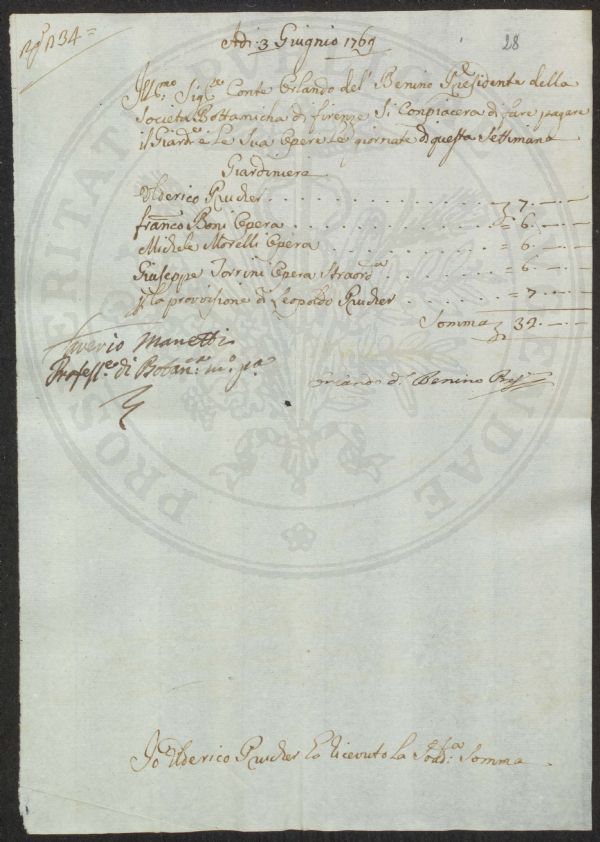 Adì: 3 Giugnio 1769
28
Ill:mo Sig:re Conte Orlando del' Benino Presidente della
Società Bottanicha di firenze Si Conpiacera di fare pagare
il Giard:e e Le Sua Opere Le giornate di questa Settimana
Giardiniera
Ulderico Prucher = 7. — —
franco Boni Opera = 6. — —
Michele Morelli Opera = 6 — —
Giuseppe Torrini Opera Straord:a = 6. — —
p la provisione di Leopoldo Prucher = 7. — —
Somma 32. — —
Saverio Manetti
Profess:e di Botan:ca m:o p:a
Orlando d: Benino Pres:
Io Ulderico Prucher ho ricevuto La Sodd:a Somma